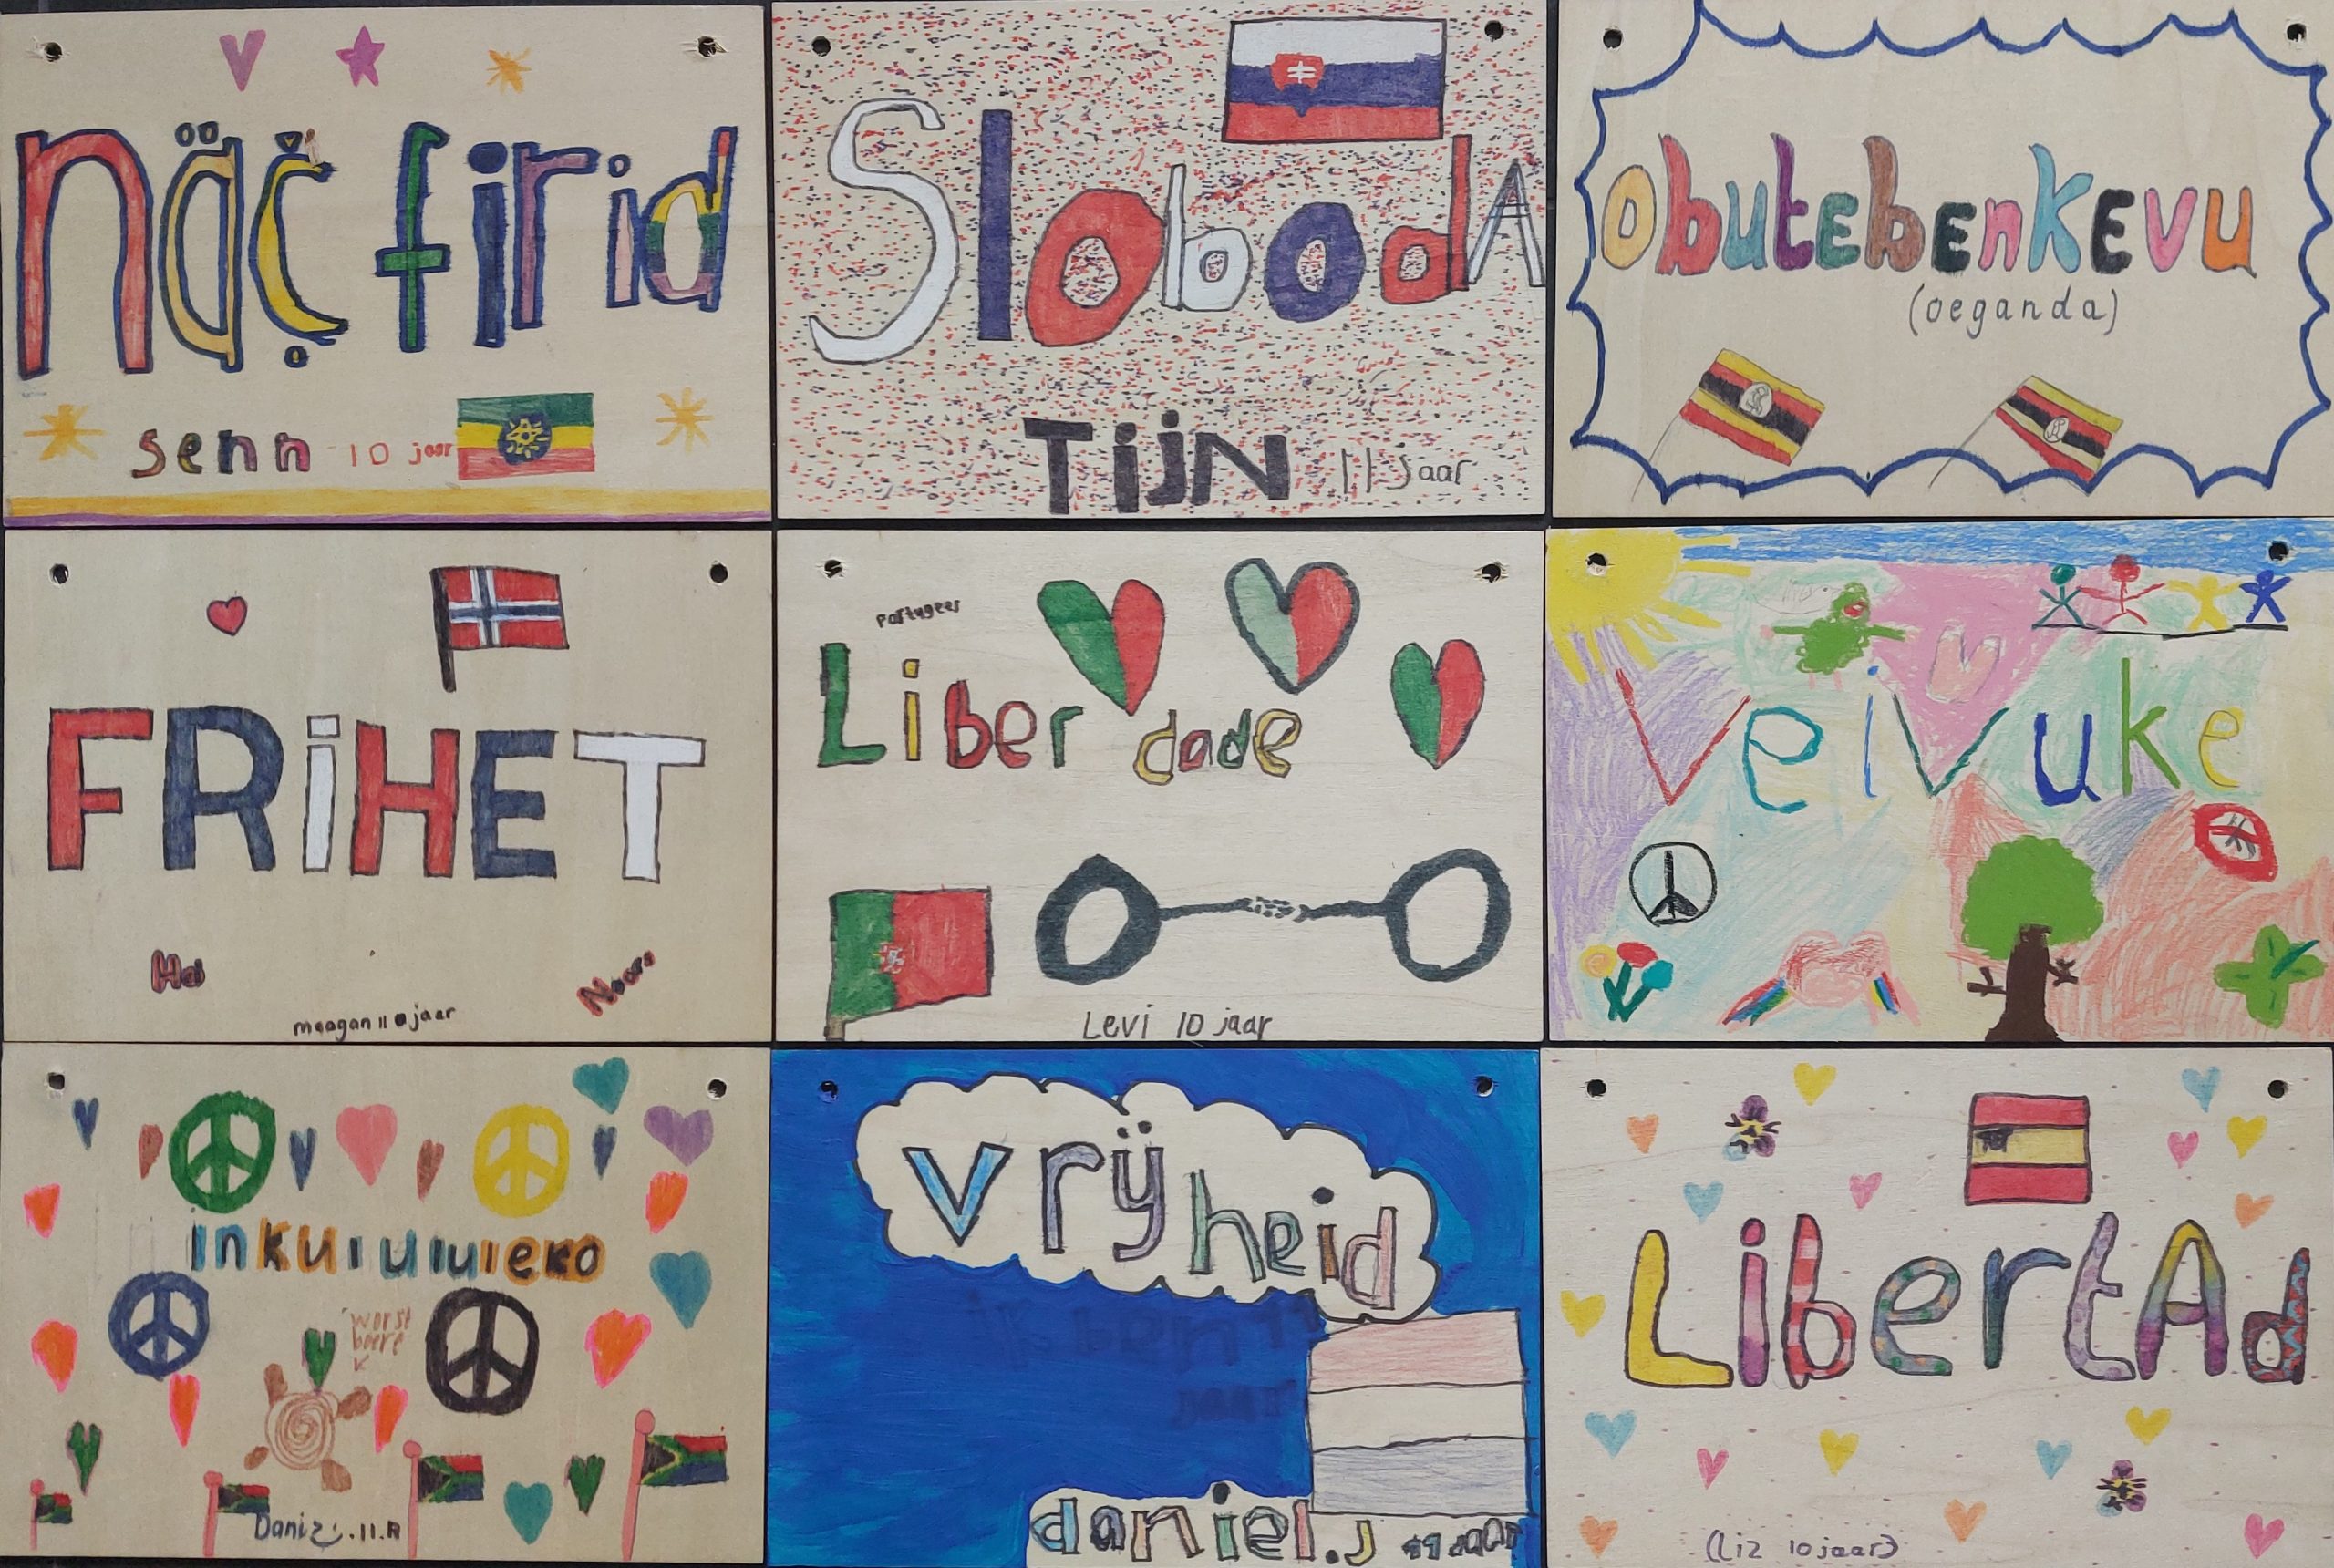 näč firid
senn 10 jaar
SlobodA
TijN 11 Jaar
obutebenkevu
(oeganda)
FRiHET
Hei
maagan 11 jaar
Portugees
Liber dade
Levi 10 jaar
Veivuke
inkulululeko
worst
boere
vrijheid
daniel.J 11 JAAR
LibertAd
(Liz 10 jaar)